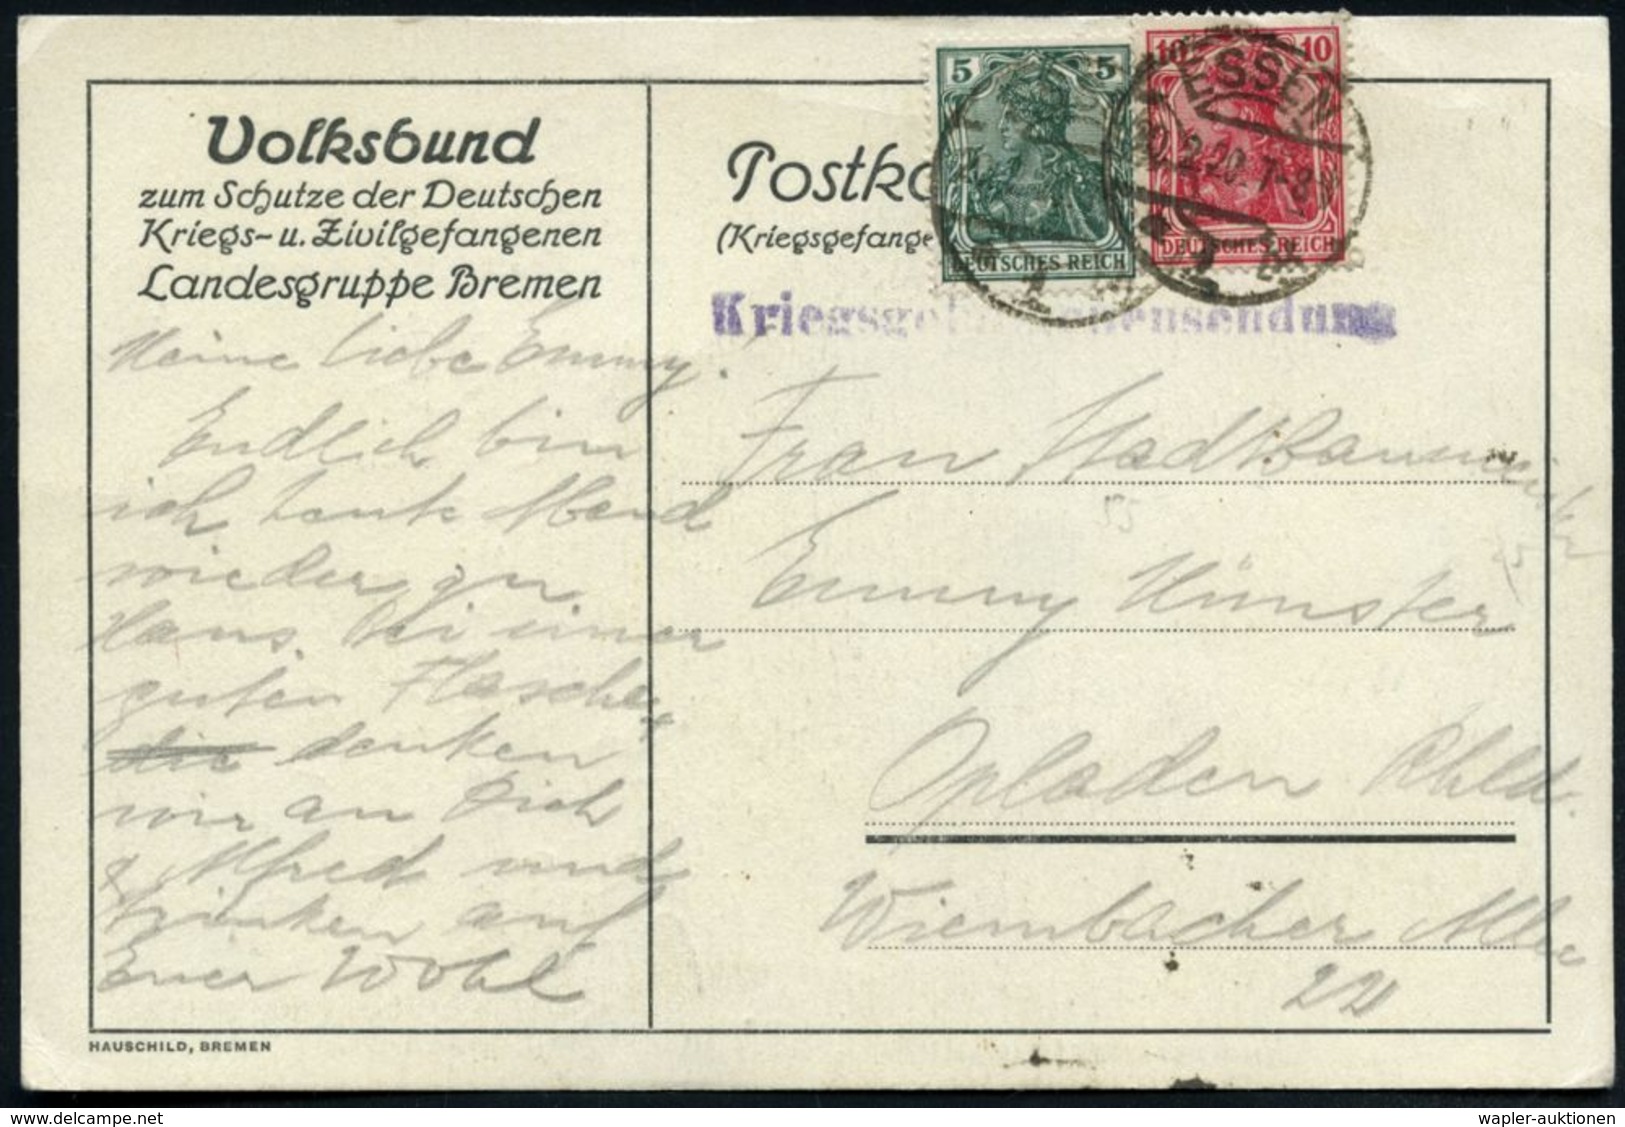 Volksbund
zum Schutze der Deutschen
Kriegs- u. Zivilgefangenen
Landesgruppe Bremen
Meine liebe Emmy.
Endlich bin
ich heute Abend
wieder zu
Hans. Bei einer
guten Flasche
die denken
wir an Dich
& Alfred und
trinken auf
Euer Wohl
HAUSCHILD, BREMEN
Postka
(Kriegsgefange
5 5
DEUTSCHES REICH
10 10
DEUTSCHES REICH
ESSEN
20.2.20. 7-8
Kriegsgefangenensendung
Frau
Emmy Münster
Opladen Rhld.
Wiembacher Allee
22
delcampe.net
wapler-auktionen